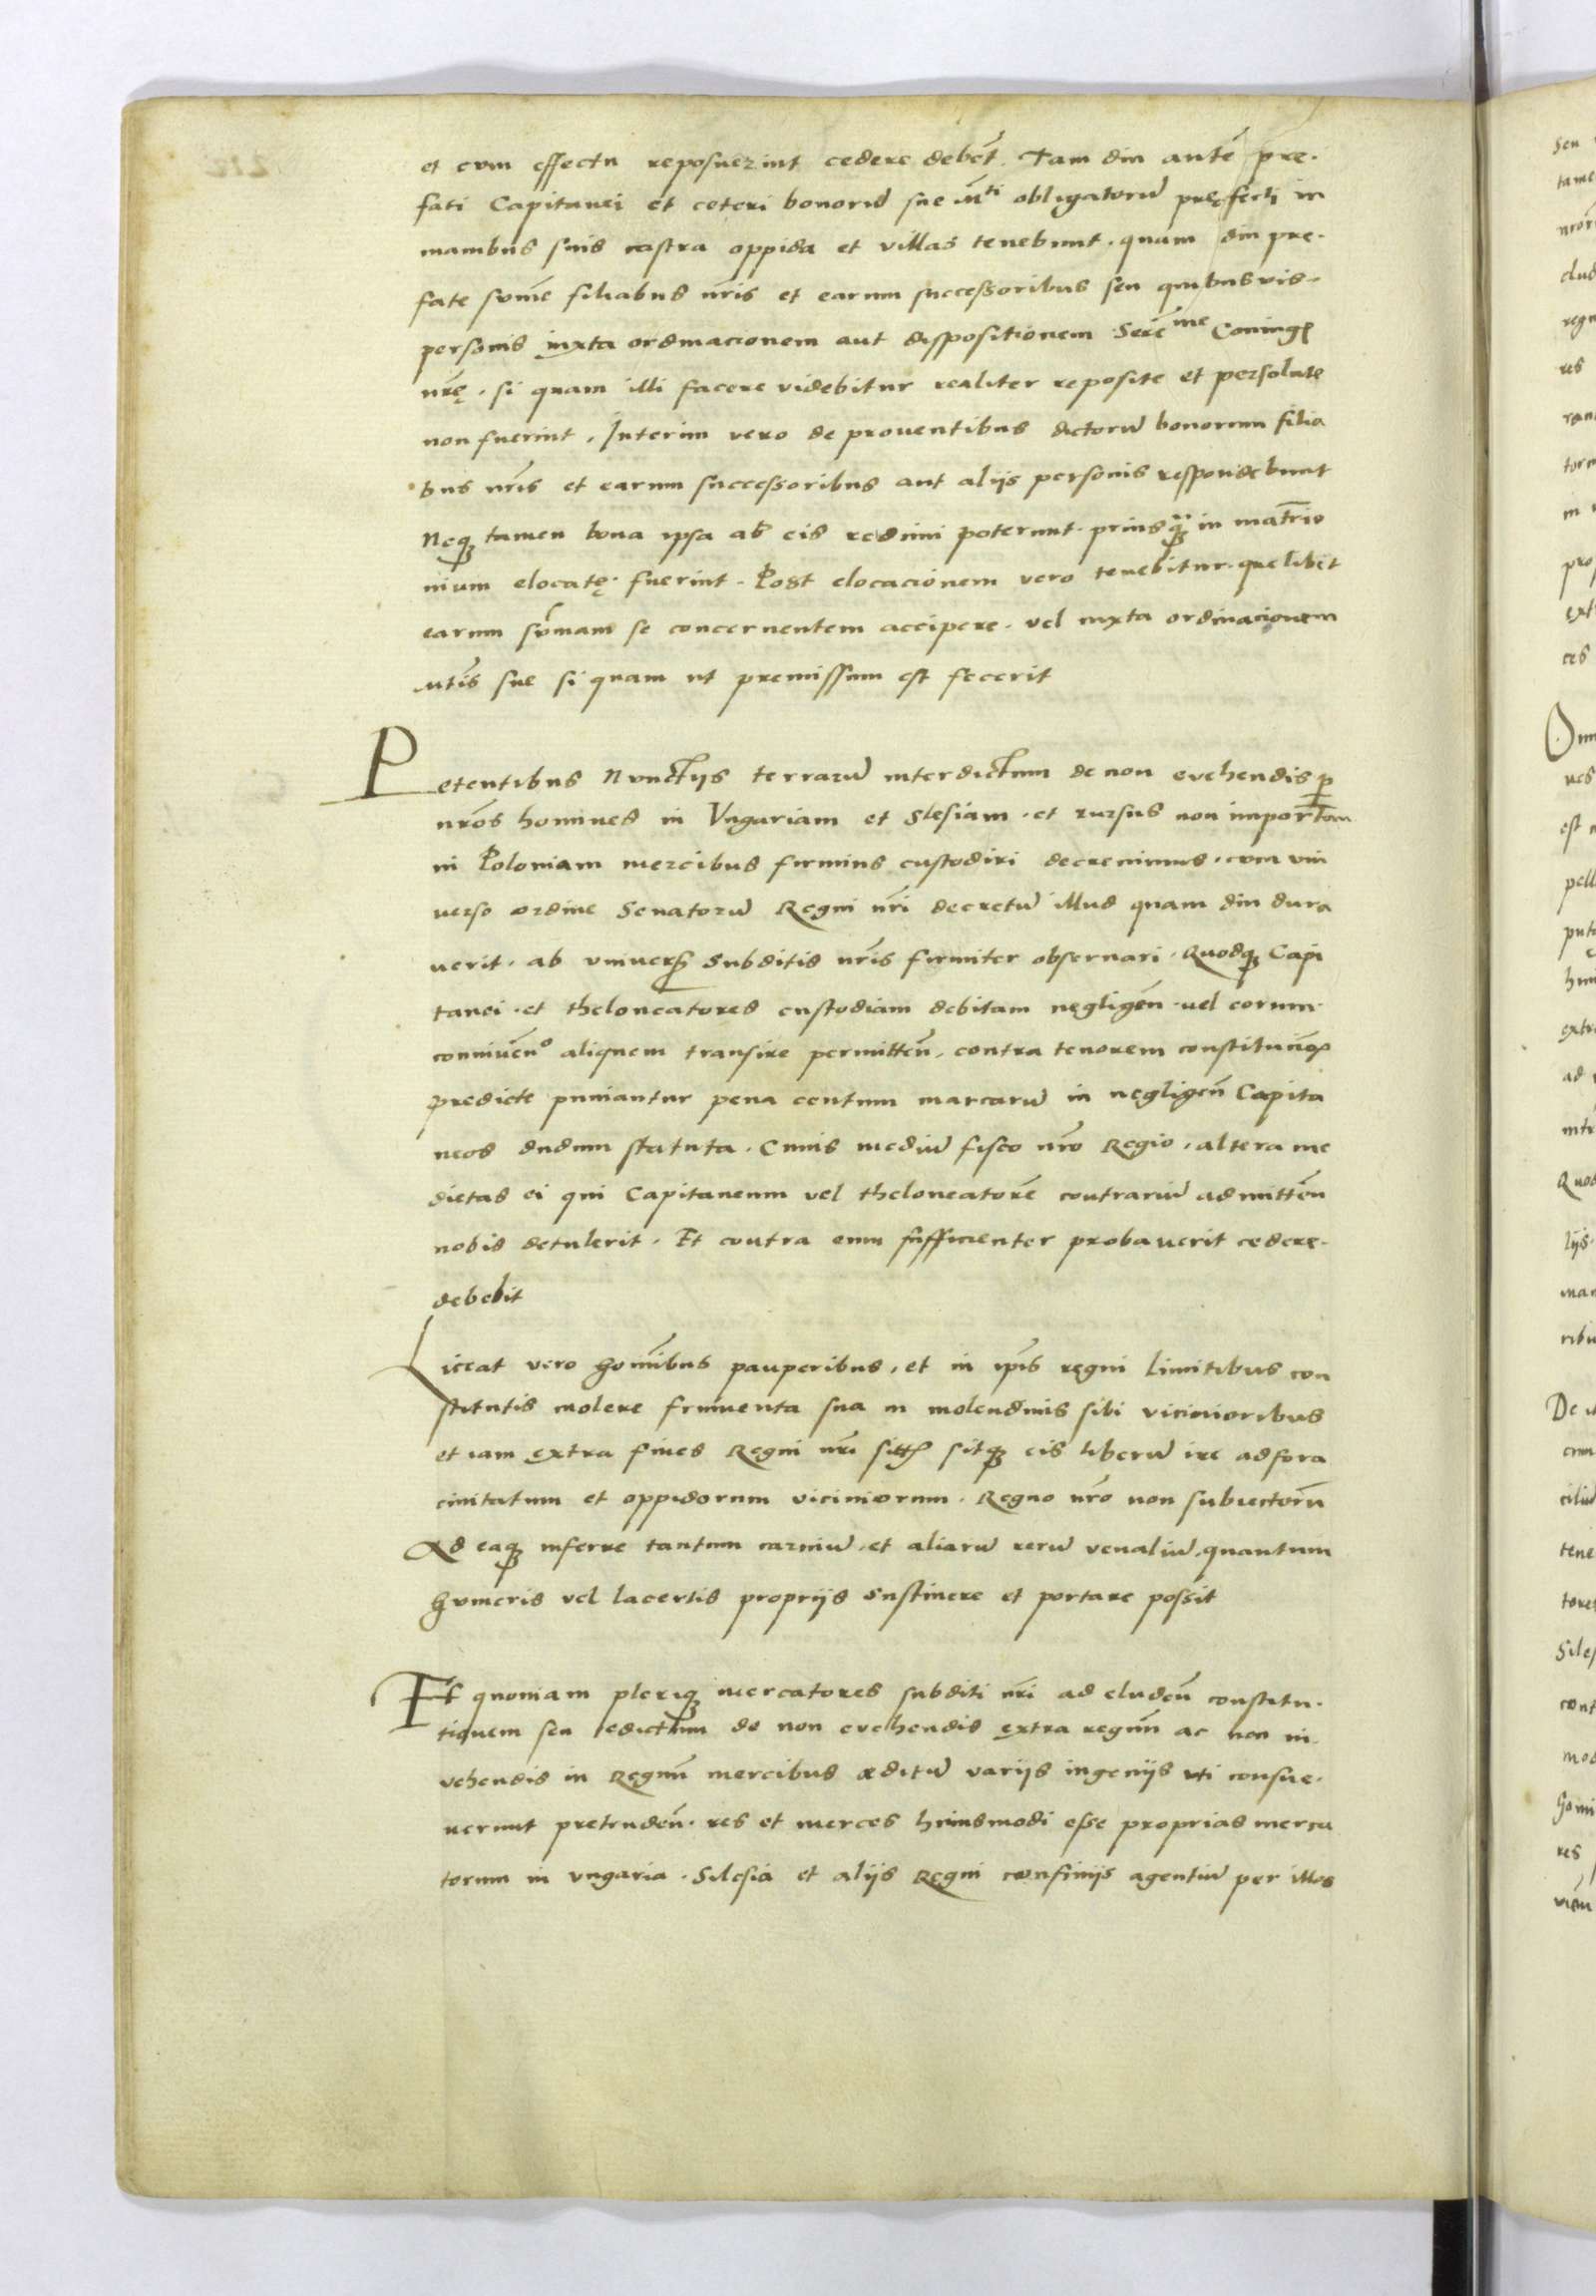 et cum effectu reposuerint cedere debēt. Tam diu autē pre-
fati Capitanei et ceteri bonorū sue Mti obligatorū prefecti in
manibus suis castra oppida et villas tenebunt. quam diu pre-
fate summe filiabus nr̄is et earum successoribus seu quibusvis-
personis iuxta ordinacionem aut dispositionem Serēme Coniugꝭ
nr̄ę. si quam illi facere videbitur realiter reposite et persolute
non fuerint. Interim vero de prouentibus dictorū bonorum filia
bus nr̄is et earum successoribus aut alijs personis respondebunt
Neqꝫ tamen bona ipsa ab eis redimi poterunt. priusqꝫ in mat̄rio
nium elocatę. fuerint. Post elocacionem vero tenebitur. quelibet
earum sūmam se concernentem accipere. vel iuxta ordinacionem
Mt̄is sue si quam ut premissum est fecerit
Petentibus Nunctijs terrarū interdictum de non evehendis ꝑ
nr̄os homines in Vngariam et Slesiam. et rursus non importan
in Poloniam mercibus firmius custodiri decreuimus. cum vni
uerso ordine Senatorū Regni nr̄i decretū illud quam diu dura
uerit. ab vniuersꝭ subditis nr̄is firmiter obseruari. Quodqꝫ Capi
tanei. et theloneatores custodiam debitam negligen̄. vel eorum.
conniuen̄o aliquem transire permitten̄. contra tenorem constitucioꝭ
predicte puniantur pena centum marcarū in negligen̄ Capita
neos dudum statuta. Cuius mediū fisco nr̄o Regio. altera me
dietas ei qui Capitaneum vel theloneatorē contrariū admitten̄
nobis detulerit. Et contra eum sufficienter probauerit cedere-
debebit
Liceat vero hoīnibus pauperibus, et in ip̄is regni limitibus con
stitutis molere frumenta sua in molendinis sibi vicinioribus
et iam extra fines Regni nr̄i sittꝭ sitqꝫ eis liberū ire ad fora
ciuitatum et oppidorum viciniorum. Regno nr̄o non subiectorū
Ad eaqꝫ inferre tantum carniū. et aliarū rerū venaliū. quantum
humeris vel lacertis proprijs sustinere et portare possit
Et quoniam pleriqꝫ mercatores subditi nr̄i ad eluden̄ constitu-
tionem seu edictum de non evehendis extra regnū ac non in-
vehendis in Regnū mercibus æditū varijs ingenijs vti consue-
uerunt pretenden̄. res et merces huiusmodi esse proprias merca
torum in vngaria. Silesia et alijs Regni confinijs agentiū per illos